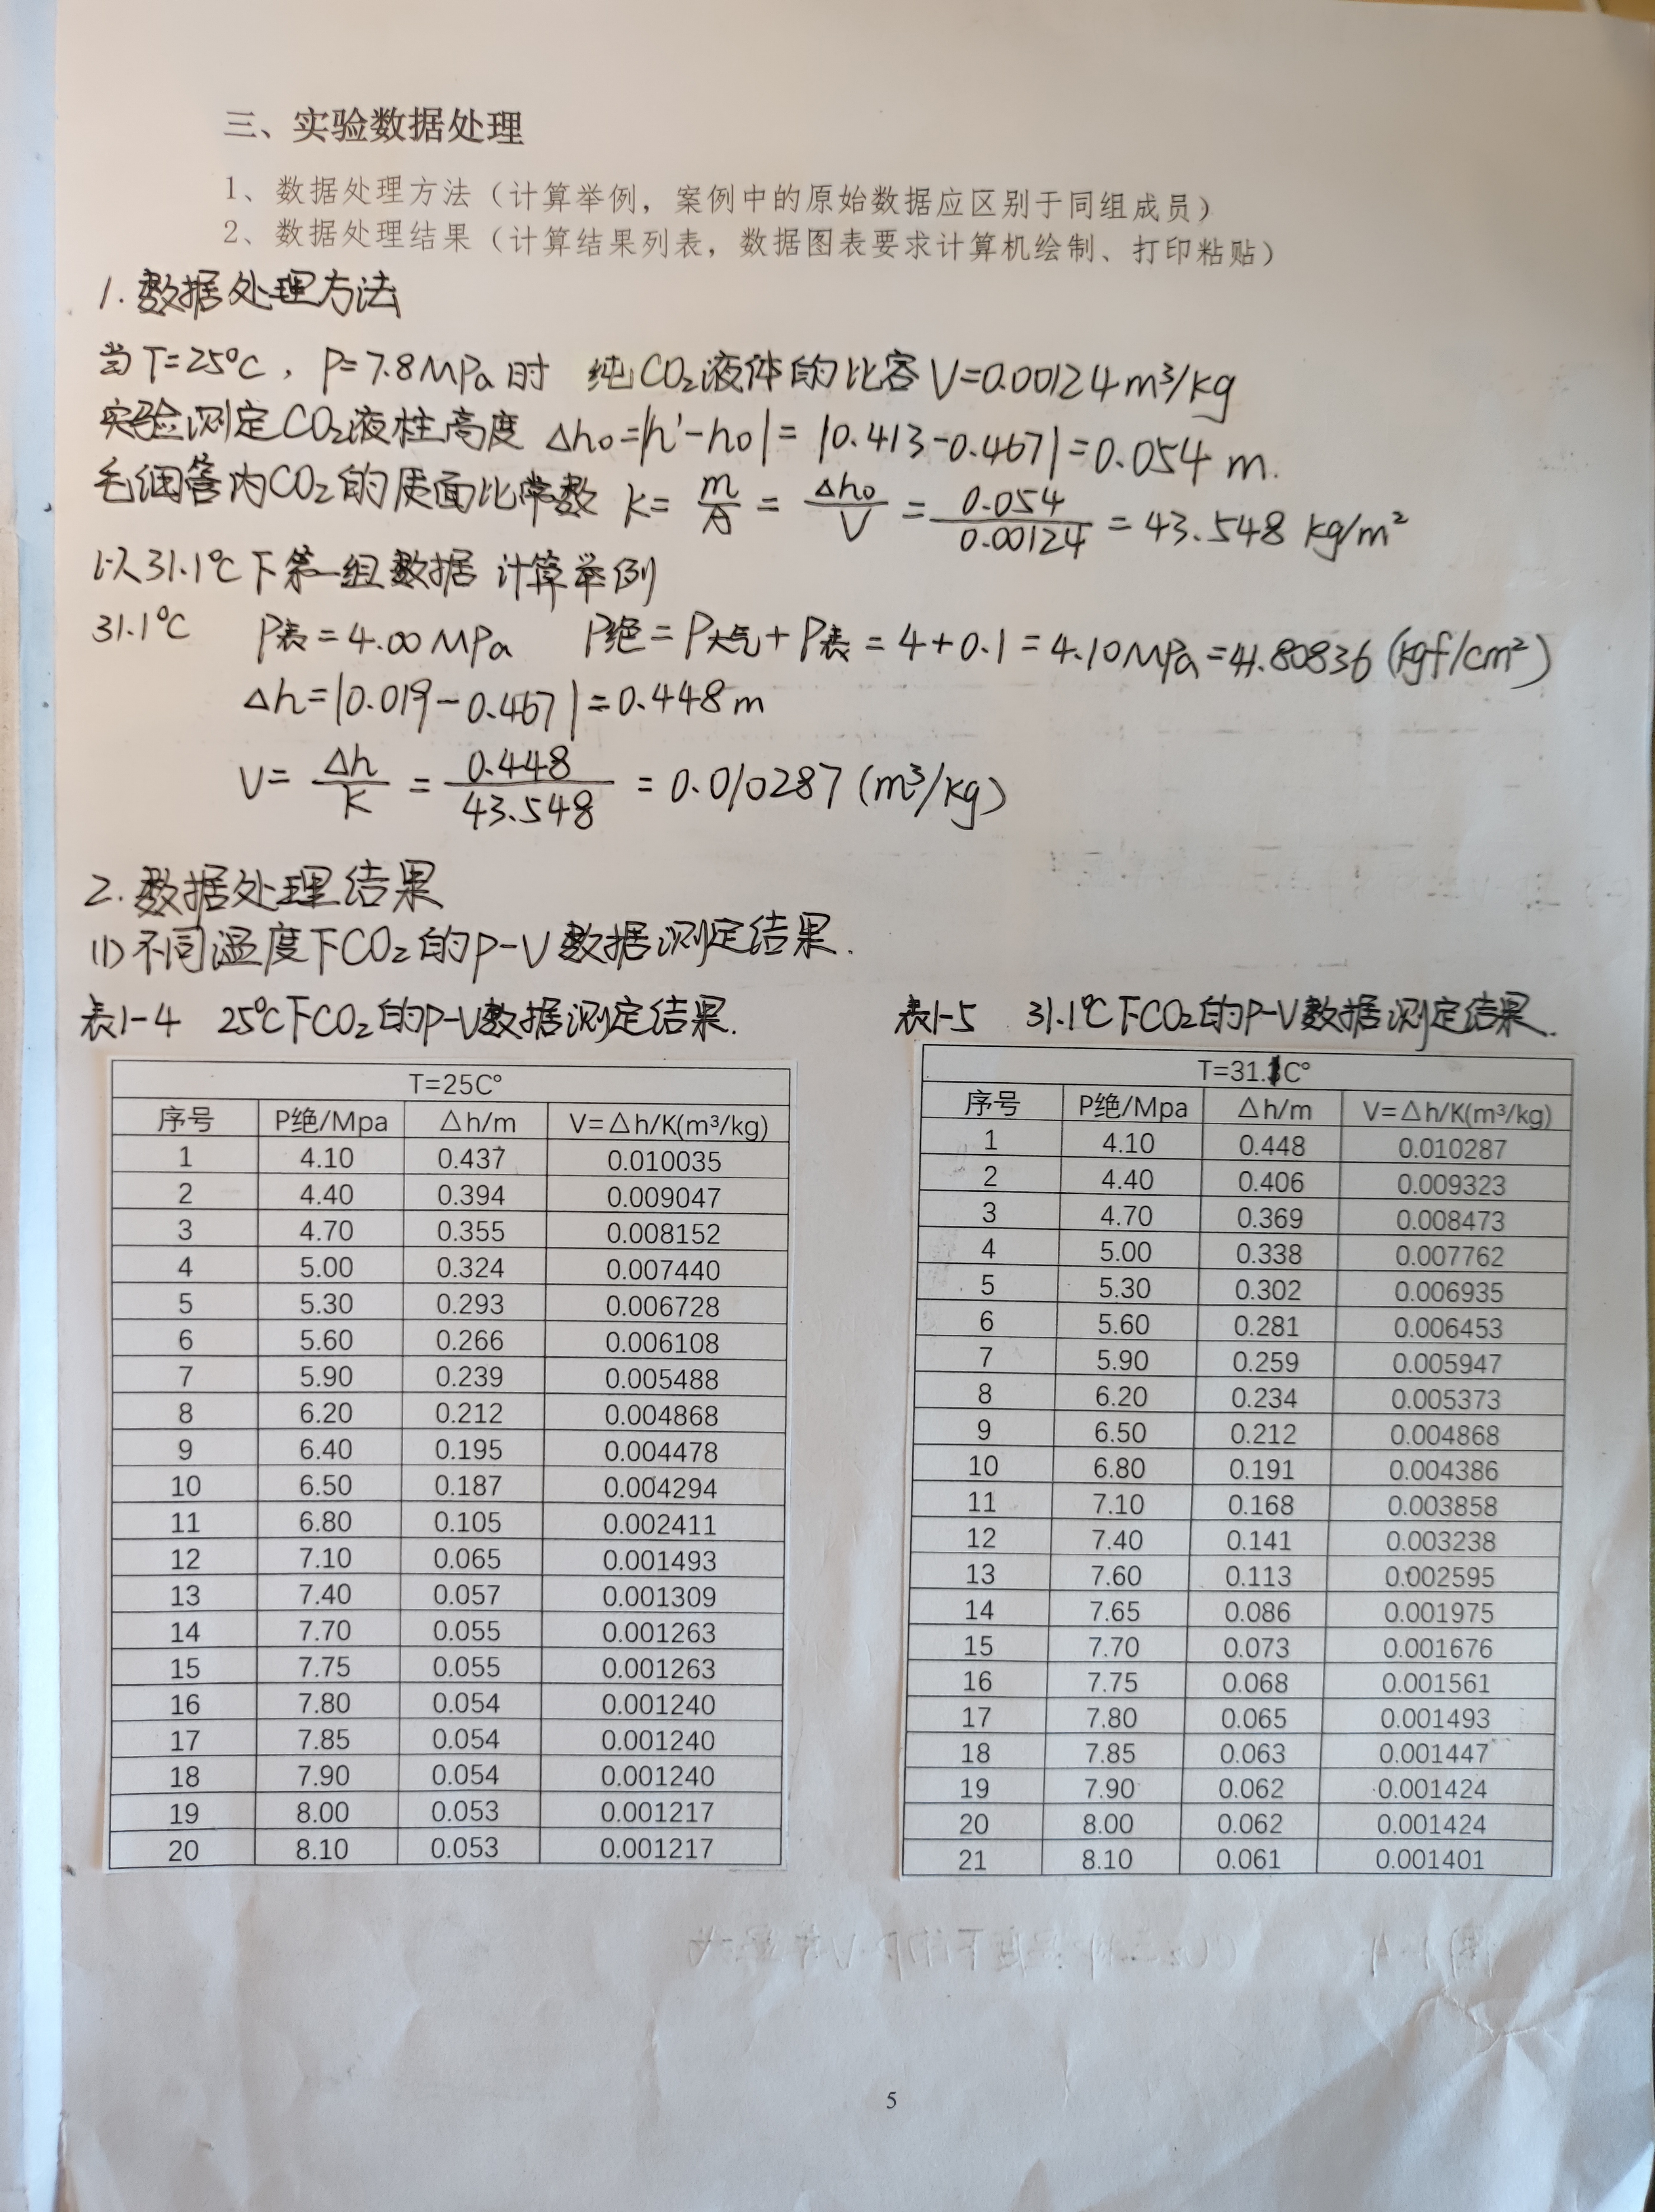 三、实验数据处理
1、数据处理方法（计算举例，案例中的原始数据应区别于同组成员）
2、数据处理结果（计算结果列表，数据图表要求计算机绘制、打印粘贴）
1.数据处理方法
当T=25℃，P=7.8MPa时 纯CO₂液体的比容V=0.00124m³/kg
实验测定CO₂液柱高度 Δh₀=|h'-h₀|=|0.413-0.467|=0.054 m.
毛细管内CO₂的质面比常数 K= m/A = Δh₀/V = 0.054/0.00124 = 43.548 kg/m²
以31.1℃下第一组数据 计算举例
31.1℃ P表=4.00MPa P绝=P大气+P表=4+0.1=4.10MPa=41.80836(kgf/cm²)
Δh=|0.019-0.467|=0.448m
V= Δh/K = 0.448/43.548 = 0.010287(m³/kg)
2.数据处理结果
(1)不同温度下CO₂的P-V数据测定结果.
表1-4 25℃下CO₂的P-V数据测定结果.
T=25C°
序号 P绝/Mpa △h/m V=△h/K(m³/kg)
1 4.10 0.437 0.010035
2 4.40 0.394 0.009047
3 4.70 0.355 0.008152
4 5.00 0.324 0.007440
5 5.30 0.293 0.006728
6 5.60 0.266 0.006108
7 5.90 0.239 0.005488
8 6.20 0.212 0.004868
9 6.40 0.195 0.004478
10 6.50 0.187 0.004294
11 6.80 0.105 0.002411
12 7.10 0.065 0.001493
13 7.40 0.057 0.001309
14 7.70 0.055 0.001263
15 7.75 0.055 0.001263
16 7.80 0.054 0.001240
17 7.85 0.054 0.001240
18 7.90 0.054 0.001240
19 8.00 0.053 0.001217
20 8.10 0.053 0.001217
表1-5 31.1℃下CO₂的P-V数据测定结果.
T=31.1C°
序号 P绝/Mpa △h/m V=△h/K(m³/kg)
1 4.10 0.448 0.010287
2 4.40 0.406 0.009323
3 4.70 0.369 0.008473
4 5.00 0.338 0.007762
5 5.30 0.302 0.006935
6 5.60 0.281 0.006453
7 5.90 0.259 0.005947
8 6.20 0.234 0.005373
9 6.50 0.212 0.004868
10 6.80 0.191 0.004386
11 7.10 0.168 0.003858
12 7.40 0.141 0.003238
13 7.60 0.113 0.002595
14 7.65 0.086 0.001975
15 7.70 0.073 0.001676
16 7.75 0.068 0.001561
17 7.80 0.065 0.001493
18 7.85 0.063 0.001447
19 7.90 0.062 0.001424
20 8.00 0.062 0.001424
21 8.10 0.061 0.001401
5